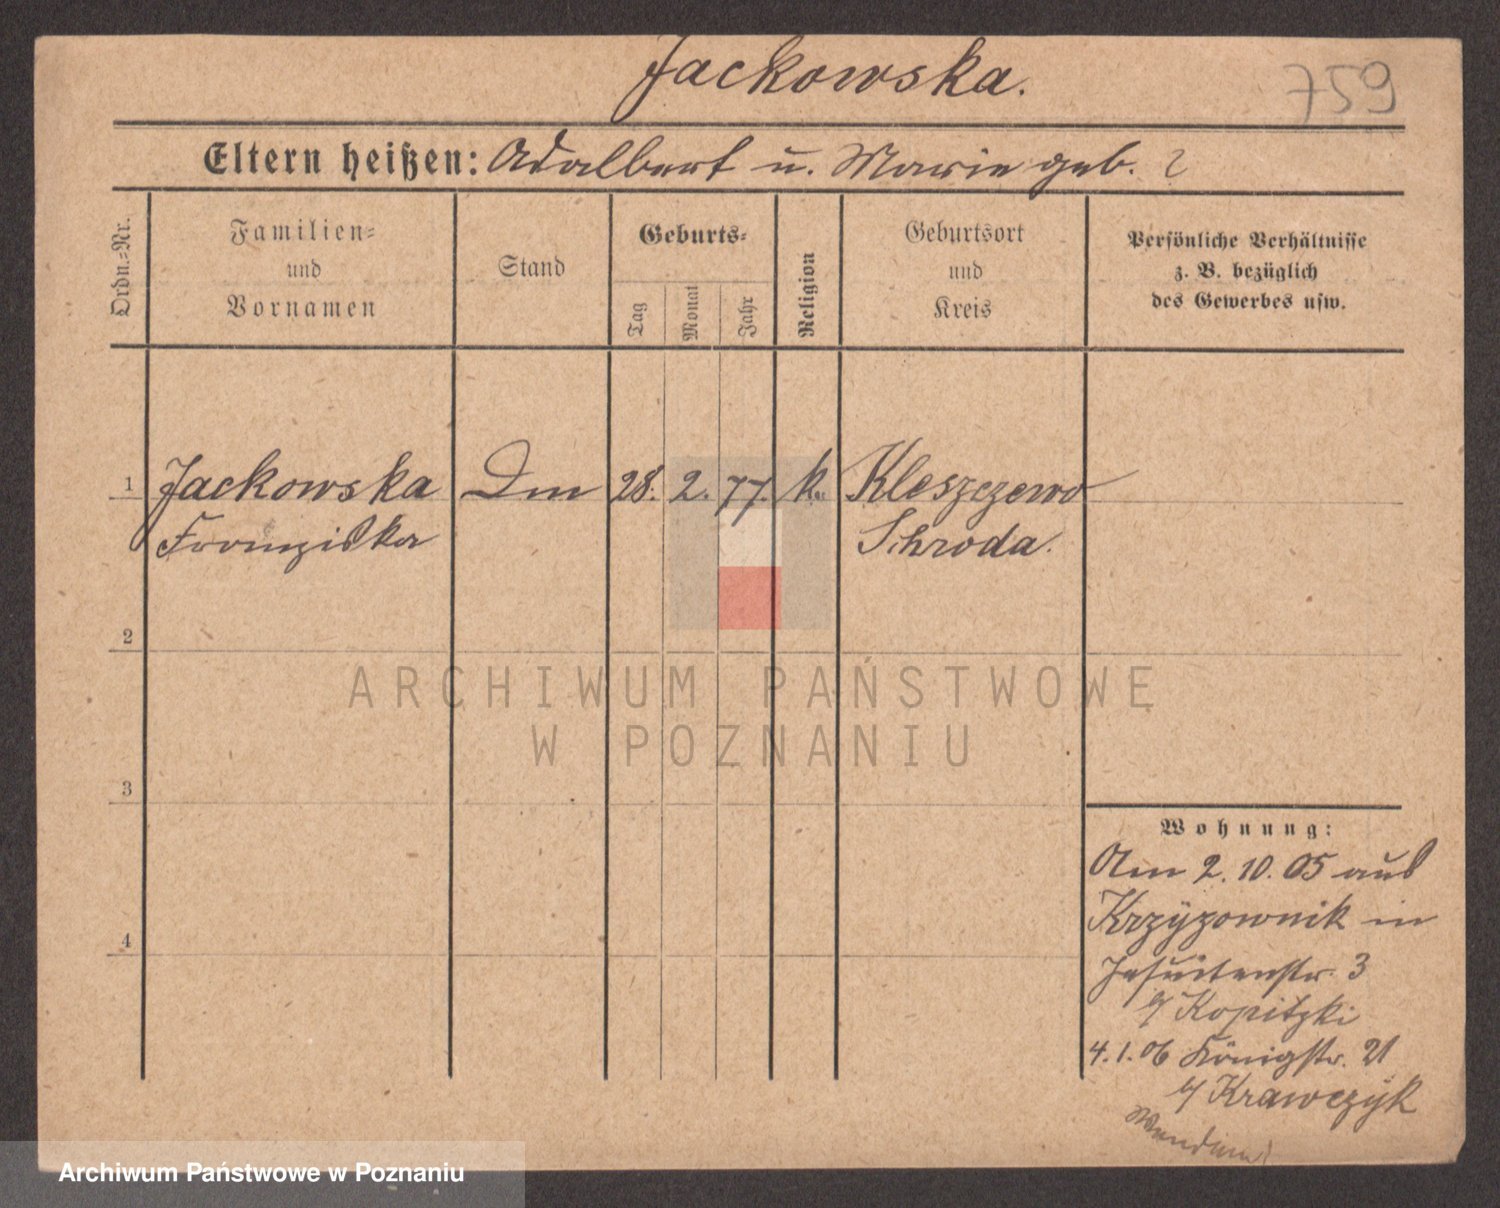 Jackowska.
759
Eltern heißen: Adalbert u. Marie geb. ?
Ordn.-Nr.
Familien-
und
Vornamen
Stand
Geburts-
Tag
Monat
Jahr
Religion
Geburtsort
und
Kreis
Persönliche Verhältnisse
z. B. bezüglich
des Gewerbes usw.
1 Jackowska Dm 28. 2. 77. k. Kleszczewo
Franziska Schroda.
2
3
4
Wohnung:
Am 2. 10. 05 aus
Krzyzownik in
Jesuitenstr. 3
b/ Kopitzki
4. 1. 06 Königstr. 21
b/ Krawczyk
ARCHIWUM PAŃSTWOWE
W POZNANIU
Archiwum Państwowe w Poznaniu